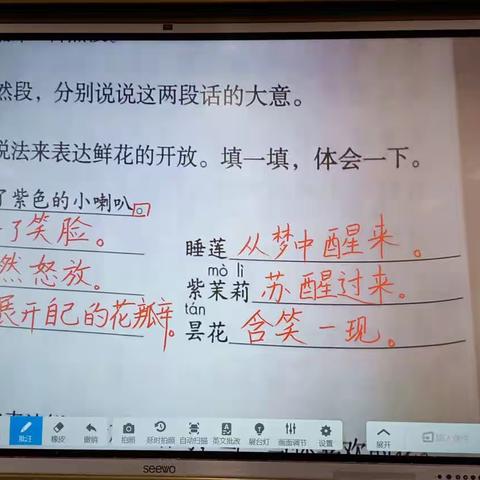 然段，分别说说这两段话的大意。
说法来表达鲜花的开放。填一填，体会一下。
了紫色的小喇叭。
了笑脸。
然怒放。
展开自己的花瓣。
睡莲 从梦中醒来。
mò lì
紫茉莉 苏醒过来。
tán
昙花 含笑一现。
批注 橡皮 撤销 拍照 延时拍照 自动扫描 英文批改 展台灯 画面调节 设置 展开
seewo